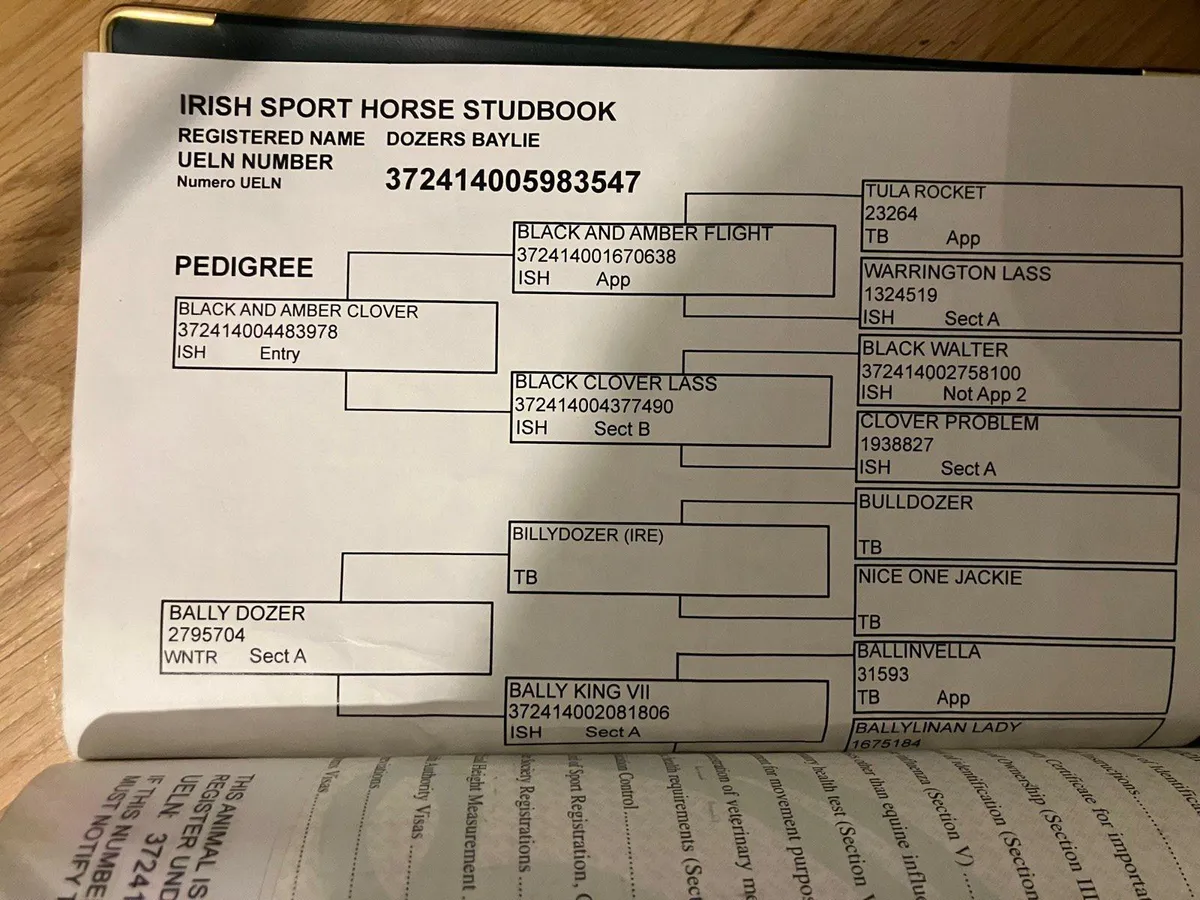 IRISH SPORT HORSE STUDBOOK
REGISTERED NAME DOZERS BAYLIE
UELN NUMBER
Numero UELN 372414005983547
PEDIGREE
BLACK AND AMBER CLOVER
372414004483978
ISH Entry
BLACK AND AMBER FLIGHT
372414001670638
ISH App
TULA ROCKET
23264
TB App
WARRINGTON LASS
1324519
ISH Sect A
BLACK CLOVER LASS
372414004377490
ISH Sect B
BLACK WALTER
372414002758100
ISH Not App 2
CLOVER PROBLEM
1938827
ISH Sect A
BALLY DOZER
2795704
WNTR Sect A
BILLYDOZER (IRE)
TB
BULLDOZER
TB
NICE ONE JACKIE
TB
BALLY KING VII
372414002081806
ISH Sect A
BALLINVELLA
31593
TB App
BALLYLINAN LADY
1675184
THIS ANIMAL IS
REGISTER UND
UELN: 37241
IF THIS NUMBE
MUST NOTIFY
Visas
Authority Visas
Height Measurement
Society Registrations
Sport Registration,
Control
health requirements (Sect
of veterinary me
for movement purpos
health test (Section V
other than equine influe
(Section V)
identification (Section
Ownership (Section III
certificate for importa